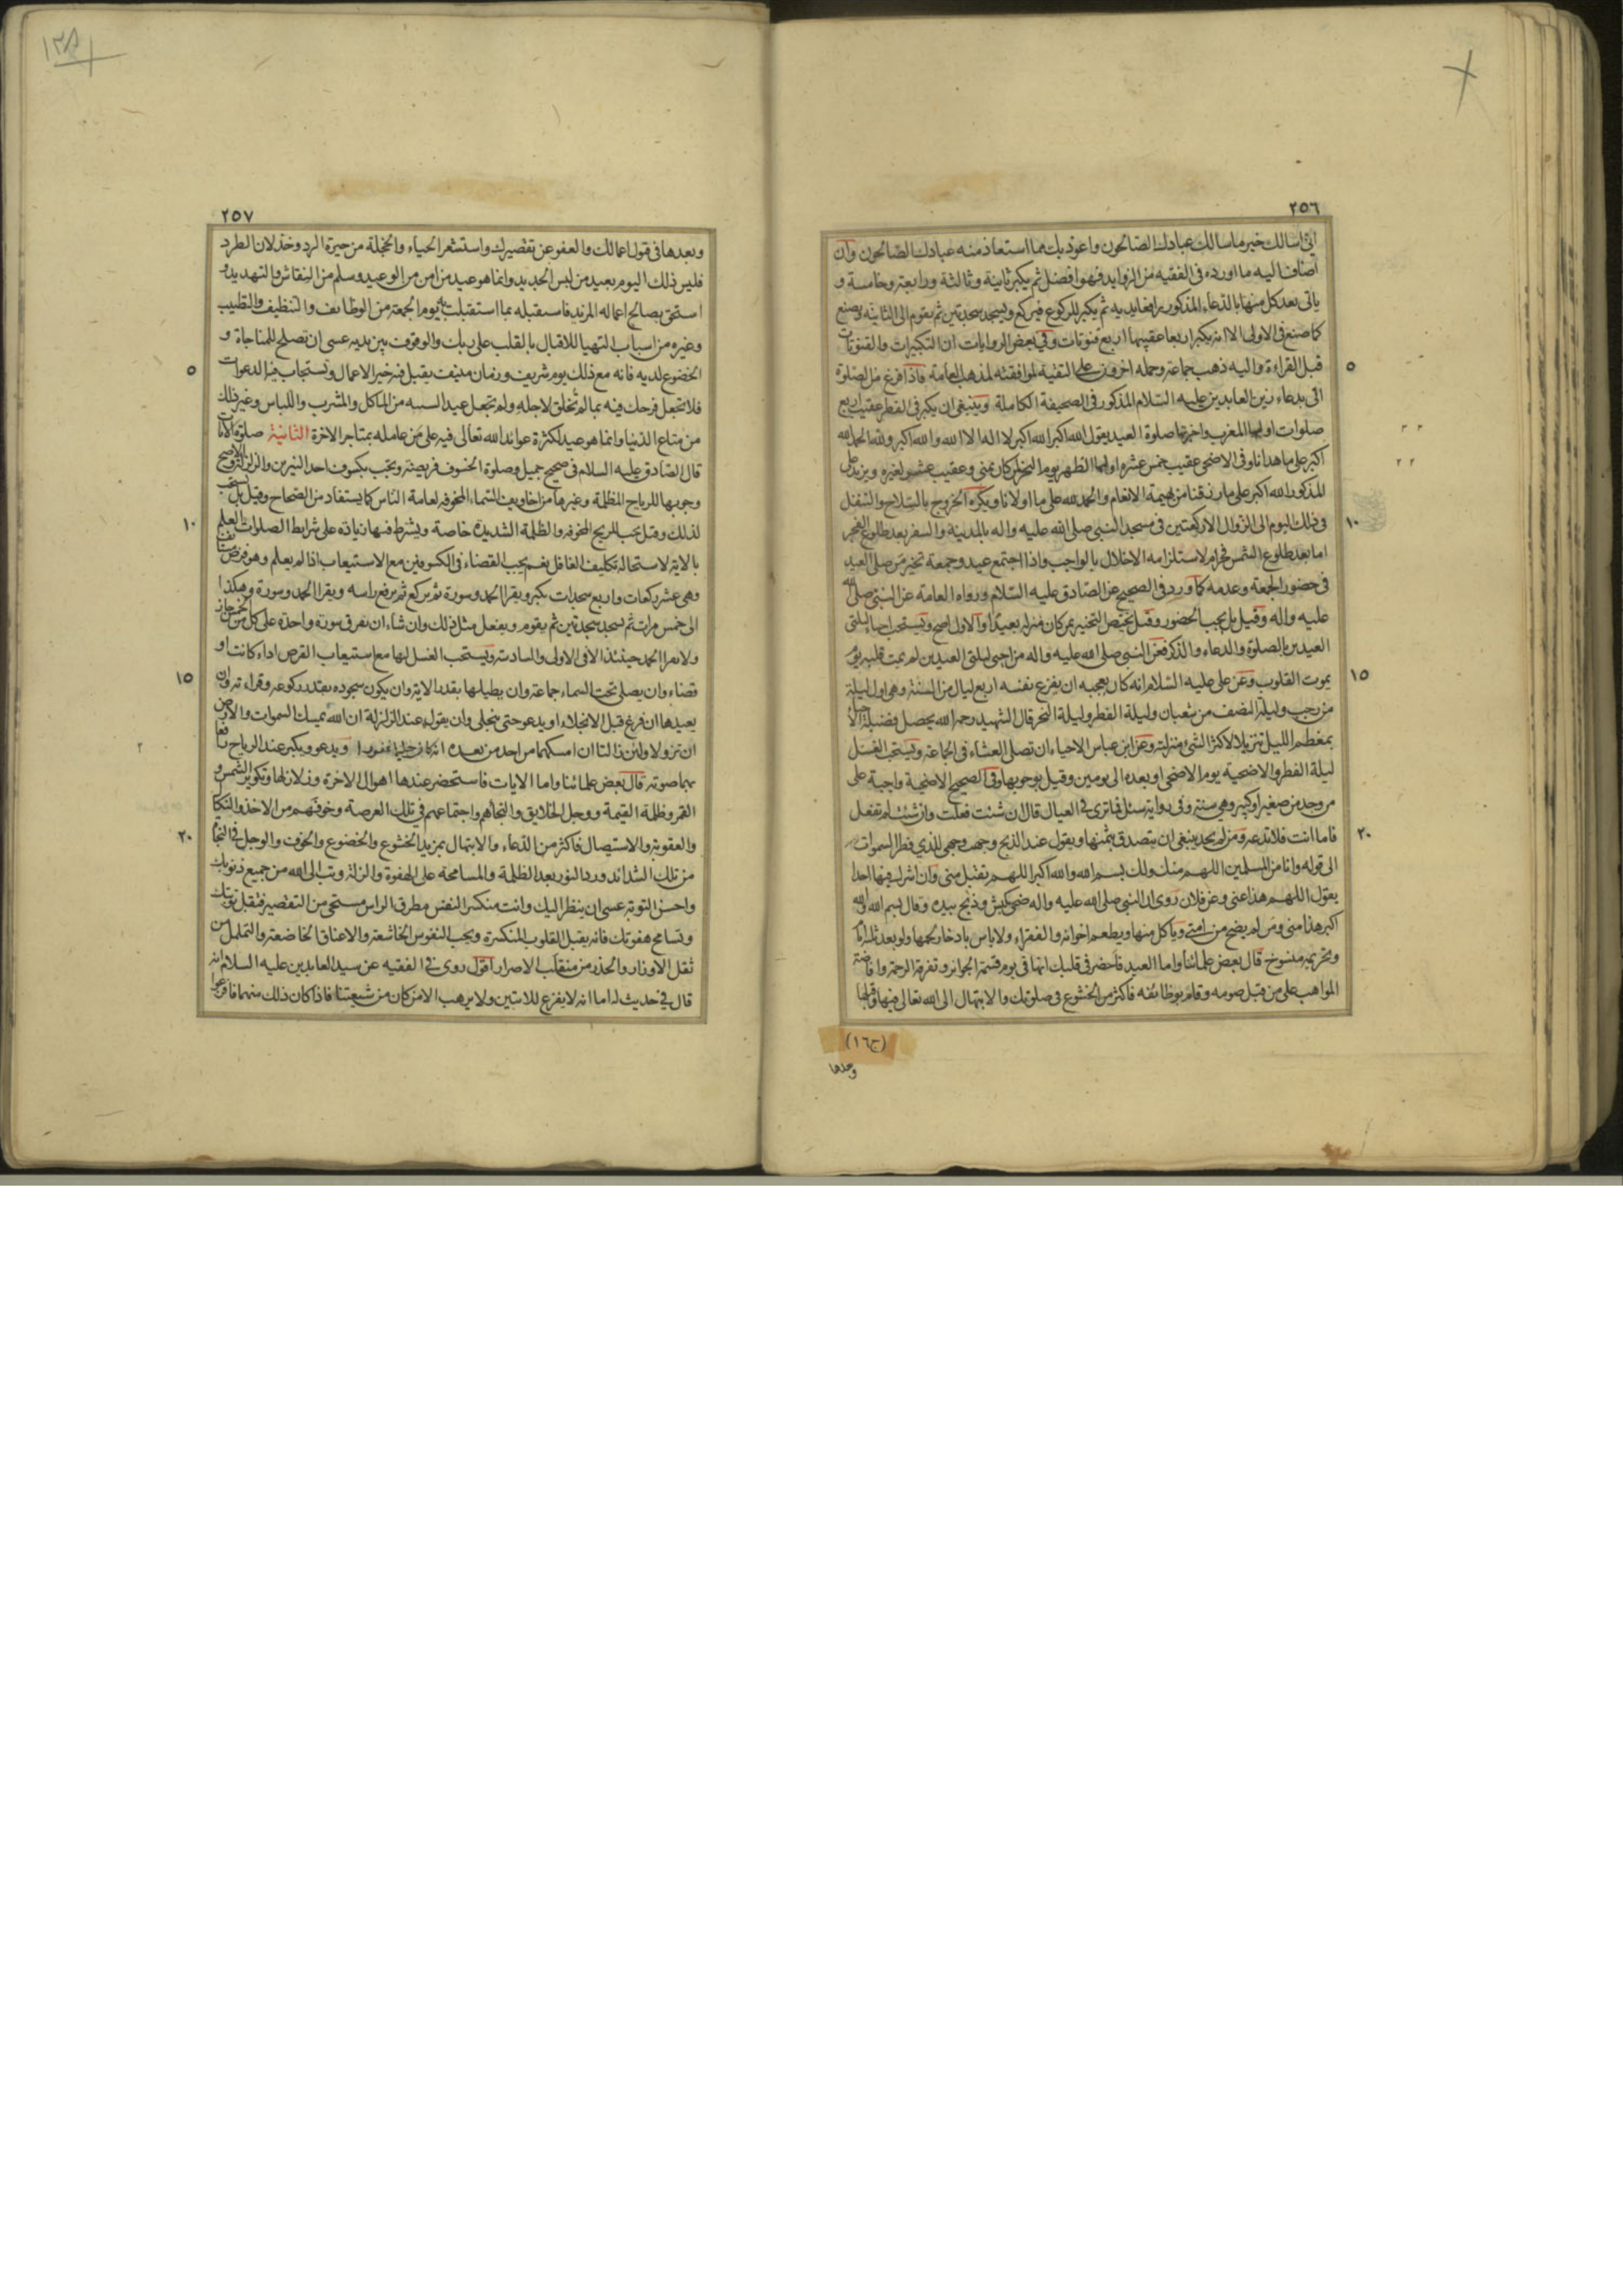 ٢٥٦
اني اسالك خير ما سالك عبادك الصالحون واعوذ بك مما استعاذ منه عبادك الصالحون وان
اضاف اليه ما اورده في الفقيه من الزوايد فهو افضل ثم يكبر ثانية وثالثة ورابعة وخامسة و
ياتي بعد كل منها بالدعاء المذكور رافعا يديه ثم يكبر للركوع فيركع ويسجد سجدتين ثم يقوم الى الثانية ويصنع
كما صنع في الاولى الا انه يكبر اربعا عقيبها اربع قنوتات وفي بعض الروايات ان التكبيرات والقنوتات
٥
قبل القراءة واليه ذهب جماعة وحمله اخرون على التقية لموافقته لمذهب العامة فاذا فرغ من الصلوة
اتى بدعاء زين العابدين عليه السلام المذكور في الصحيفة الكاملة وينبغي ان يكبر في الفطر عقيب اربع
صلوات اولها المغرب واخرتها صلوة العيد يقول الله اكبر الله اكبر لا اله الا الله والله اكبر ولله الحمد الله
اكبر على ما هدانا وفي الاضحى عقيب خمس عشرة اولها الظهر يوم النحر لمن كان بمنى وعقيب عشر لغيره ويزيد على
المذكور الله اكبر على ما رزقنا من بهيمة الانعام والحمد لله على ما اولانا ويكره الخروج بالسلاح والتنفل
١٠
في ذلك اليوم الى الزوال الا ركعتين في مسجد النبي صلى الله عليه واله بالمدينة والسفر بعد طلوع الفجر
اما بعد طلوع الشمس فحرام لاستلزامه الاخلال بالواجب واذا اجتمع عيد وجمعة تخير من صلى العيد
في حضور الجمعة وعدمه كما ورد في الصحيح عن الصادق عليه السلام ورواه العامة عن النبي صلى الله
عليه واله وقيل بل يجب الحضور وقيل يختص التخيير بمن كان منزله بعيدا والاول اصح ويستحب احياء ليلتي
العيدين بالصلوة والدعاء والذكر فعن النبي صلى الله عليه واله من احيى ليلتي العيدين لم يمت قلبه يوم
١٥
يموت القلوب وعن علي عليه السلام انه كان يعجبه ان يفرغ نفسه اربع ليال من السنة وهي اول ليلة
من رجب وليلة النصف من شعبان وليلة الفطر وليلة النحر قال الشهيد رحمه الله يحصل فضيلة الاحياء
بمعظم الليل تنزيلا لاكثر الشيء منزلته وعن ابن عباس الاحياء ان تصلي العشاء في الجماعة ويستحب الغسل
ليلة الفطر والاضحية يوم الاضحى او بعده الى يومين وقيل بوجوبها وفي الصحيح الاضحية واجبة على
من وجد من صغير او كبير وهي سنة وفي رواية سئل فما ترى في العيال قال ان شئت فعلت وان شئت لم تفعل
٢٠
فاما انت فلا تدعه ومن لم يجد ينبغي ان يتصدق بثمنها ويقول عند الذبح وجهت وجهي للذي فطر السموات
الى قوله وانا من المسلمين اللهم منك ولك بسم الله والله اكبر اللهم تقبل مني وان اشرك فيها احدا
يقول اللهم هذا عني وعن فلان روي ان النبي صلى الله عليه واله ضحى كبش وذبح بيده وقال بسم الله والله
اكبر هذا مني ومن لم يضح من امتي وياكل منها ويطعم اخوانه والفقراء ولا باس بادخار لحمها ولو بعد ثلثة ايام
وتحريمه منسوخ قال بعض علمائنا واما العيد فاحضر في قلبك انها في يوم قسمة الجوائز وتفرقة الرحمة وافاضة
المواهب على من قبل صومه وقام بوظائفه فاكثر من الخشوع في صلوتك والابتهال الى الله تعالى فيها وقبلها
(ج١٦)
وبعدها
٢٥٧
وبعدها في قبول اعمالك والعفو عن تقصيرك واستشعر الحياء والخجلة من حيرة الرد وخذلان الطرد
فليس ذلك اليوم بعيد من لبس الجديد وانما هو عيد من امن من الوعيد وسلم من النقاش والتهديد و
استحق بصالح اعماله المزيد فاستقبله بما استقبلت به يوم الجمعة من الوظائف والتنظيف والتطيب
وغيره من اسباب التهيا للاقبال بالقلب على ربك والوقوف بين يديه عسى ان تصلح للمناجاة و
٥
الخضوع لديه فانه مع ذلك يوم شريف وزمان منيف يقبل فيه خير الاعمال وتستجاب فيه الدعوات
فلا تجعل فرحك فيه بما لم تخلق لاجله ولم تجعل عيدا بسببه من الماكل والمشرب واللباس وغير ذلك
من متاع الدنيا وانما هو عيد لكثرة عوائد الله تعالى فيه على من عامله بمتاجر الاخرة الثانية صلوة الايات
قال الصادق عليه السلام في صحيح جميل وصلوة الخسوف فريضة وتجب بكسوف احد النيرين والزلزلة والاصح
وجوبها للرياح المظلمة وغيرها من اخاويف السماء المخوفة لعامة الناس كما يستفاد من الصحاح وقيل بل يستحب
١٠
لذلك وقيل يجب للريح المخوفة والظلمة الشديدة خاصة ويشترط فيها زيادة على شرايط الصلوات العلم
بالاية لاستحالة تكليف الغافل نعم يجب القضاء في الكسوفين مع الاستيعاب اذا لم يعلم وهو فرض مستانف
وهي عشر ركعات واربع سجدات يكبر ويقرا الحمد وسورة ثم يركع ثم يرفع راسه ويقرا الحمد وسورة وهكذا
الى خمس مرات ثم يسجد سجدتين ثم يقوم ويفعل مثل ذلك وان شاء ان يفرق سورة واحدة على كل من الخمس جاز
ولا يقرا الحمد حينئذ الا في الاولى والسادسة ويستحب الغسل لها مع استيعاب القرص اداء كانت او
١٥
قضاء وان يصلي تحت السماء جماعة وان يطيلها بقدر الاية وان يكون سجوده بقدر ركوعه وقراءته وان
يعيدها ان فرغ قبل الانجلاء او يدعو حتى ينجلي وان يقول عند الزلزلة ان الله يمسك السموات والارض
ان تزولا ولئن زالتا ان امسكهما من احد من بعده انه كان حليما غفورا ويدعو ويكبر عند الرياح رافعا
بها صوته قال بعض علمائنا واما الايات فاستحضر عندها اهوال الاخرة وزلازلها وتكوير الشمس و
القمر وظلمة القيمة ووجل الخلايق والتجاهم واجتماعهم في تلك العرصة وخوفهم من الاخذ والنكال
٢٠
والعقوبة والاستيصال فاكثر من الدعاء والابتهال بمزيد الخشوع والخضوع والخوف والوجل في النجاة
من تلك الشدائد ورد النور بعد الظلمة والمسامحة على الهفوة والزلة وتب الى الله من جميع ذنوبك
واحسن التوبة عسى ان ينظر اليك وانت منكسر النفس مطرق الراس مستحي من التقصير فتقبل توبتك
وتسامح هفوتك فانه يقبل القلوب المنكسرة ويحب النفوس الخاشعة والاعناق الخاضعة والتململ من
ثقل الاوزار والحذر من منقلب الاصرار اقول روى في الفقيه عن سيد العابدين عليه السلام انه
قال في حديث له اما انه لا يفزع للايتين ولا يرهب الا من كان من شيعتنا فاذا كان ذلك منهما فافزعوا